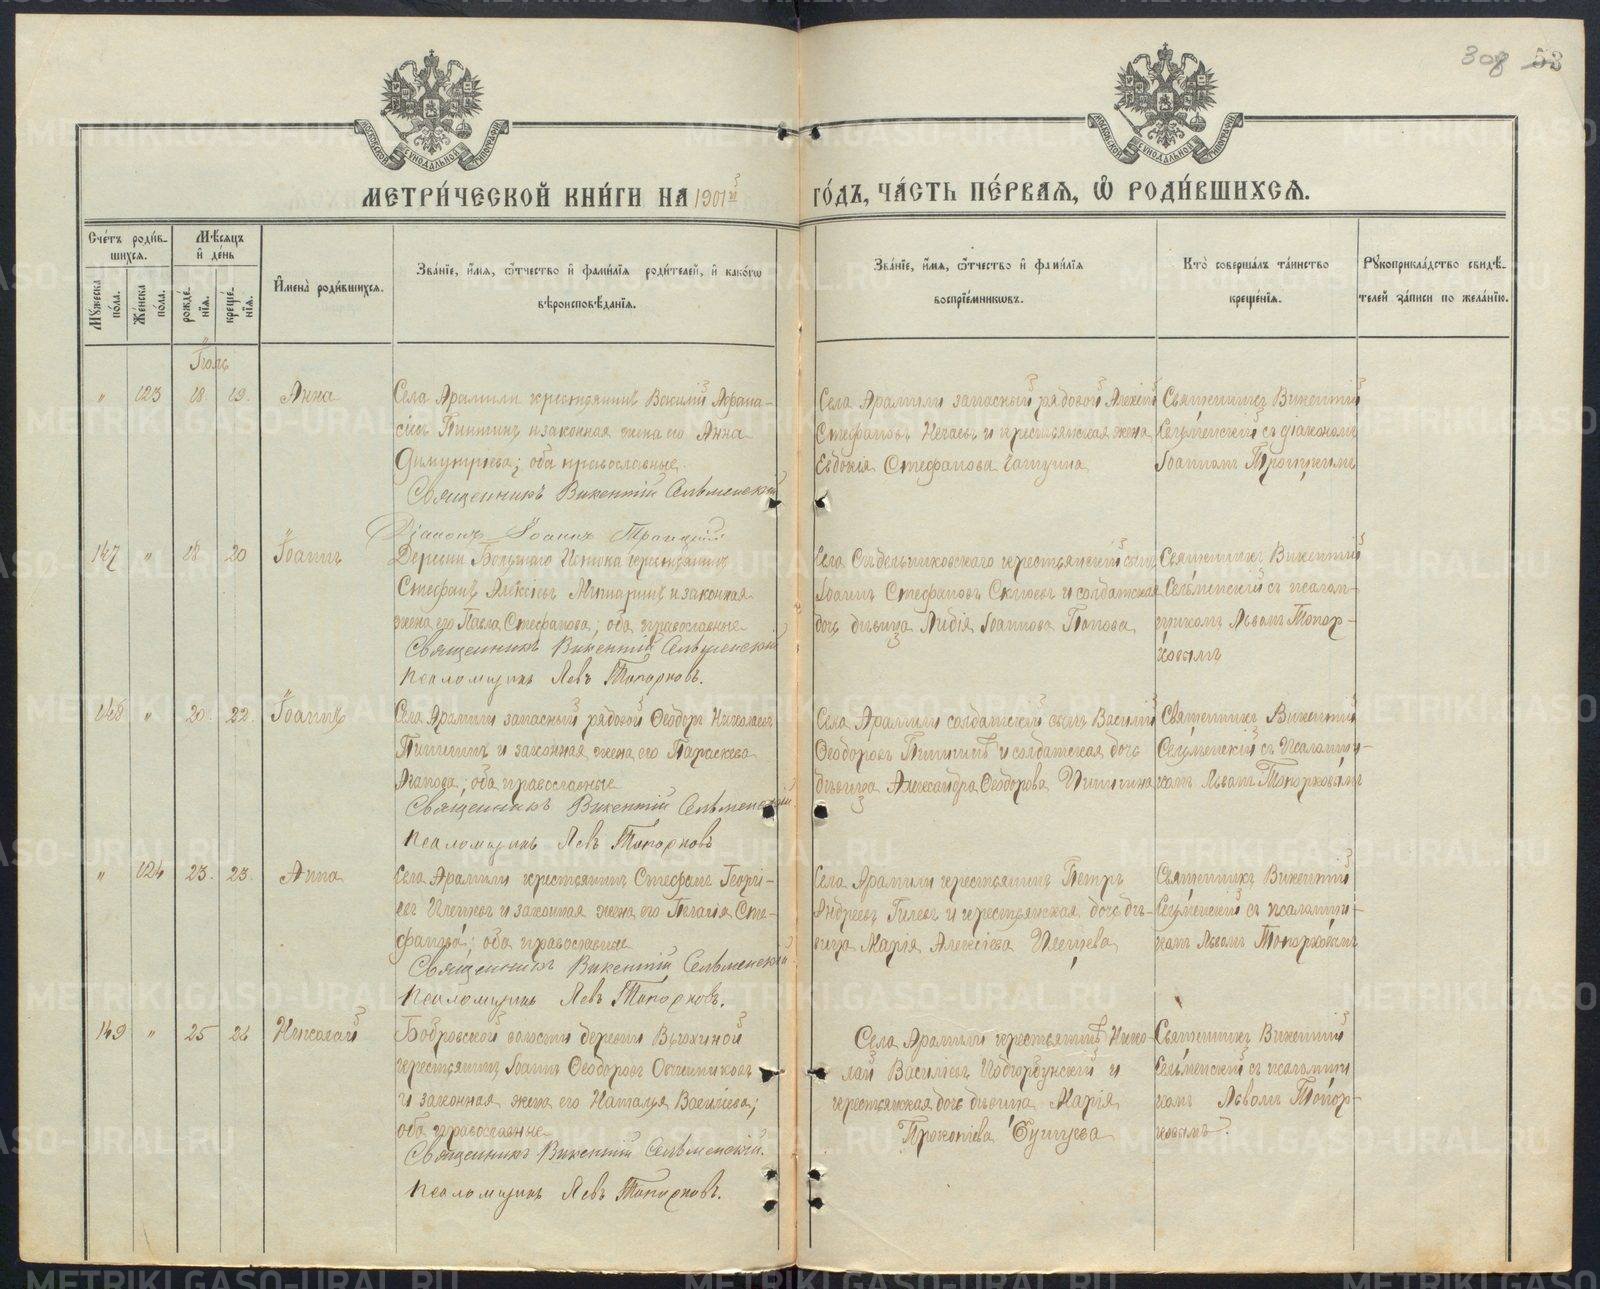 308 53
МЕТРИ́ЧЕСКОЙ КНИ́ГИ НА 1901й
ГО́ДЪ, ЧА́СТЬ ПЕ́РВАЯ, Ѽ РОДИ́ВШИХСЯ.
Счетъ роди́вшихся.
Мѣсяцъ и҆ де́нь
И҆мена̀ роди́вшихся.
Зва́нїе, и҆́мя, ѻ҆́тчество и҆ фами́лїѧ роди́телей, и҆ како́гѡ
вѣроисповѣ́данїѧ.
Мꙋ́жеска по́ла.
Же́нска по́ла.
рожде́нїѧ.
креще́нїѧ.
Зва́нїе, и҆́мя, ѻ҆́тчество и҆ фами́лїѧ
воспрїе́мникѡвъ.
Кто̀ соверша́лъ та́инство
креще́нїѧ.
Рꙋкоприкла́дство свидѣ́-
телей за́писи по жела́нїю.
Іюль
" 123 18 19. Анна
Села Арамили крестьянинъ Василій Афана-
сіевъ Пининъ и законная жена его Анна
Димитріева; оба православные.
Священникъ Викентій Сельменскій
Діаконъ Іоаннъ Троицкій
Села Арамили запасный рядовой Алексій
Стефановъ Нечаевъ и крестьянская жена
Евдокія Стефанова
Священникъ Викентій
Сельменскій съ діакономъ
Іоанномъ Троицкимъ
147 " 18 20 Іоаннъ
Деревни Большаго Истока крестьянинъ
Стефанъ Алексіевъ и законная
жена его Павла Стефанова; оба православные
Священникъ Викентій Сельменскій
Псаломщикъ Левъ Топорковъ.
Села крестьянскій сынъ
Іоаннъ Стефановъ и солдатская
дочь дѣвица Лидія Іоаннова Попова
Священникъ Викентій
Сельменскій съ псалом-
щикомъ Львомъ Топор-
ковымъ
148 " 20. 22. Іоаннъ
Села Арамили запасный рядовой Ѳеодоръ Николаевъ
Пининъ и законная жена его Параскева
оба православные
Священникъ Викентій Сельменскій
Псаломщикъ Левъ Топорковъ
Села Арамили солдатскій сынъ Василій
Ѳеодоровъ Пининъ и солдатская дочь
дѣвица Александра Ѳеодорова Пинина
Священникъ Викентій
Сельменскій съ псаломщи-
комъ Львомъ Топорковымъ
" 124 23. 23. Анна
Села Арамили крестьянинъ Стефанъ Георгі-
евъ и законная жена его Пелагія Сте-
фанова; оба православные
Священникъ Викентій Сельменскій
Псаломщикъ Левъ Топорковъ.
Села Арамили крестьянинъ Петръ
Андреевъ Гилевъ и крестьянская дочь дѣ-
вица Марія Алексіева
Священникъ Викентій
Сельменскій съ псаломщи-
комъ Львомъ Топорковымъ
149 " 25 26 Николай
Бобровской волости деревни Вьюхиной
крестьянинъ Іоаннъ Ѳеодоровъ Овчинниковъ
и законная жена его Наталья Васильева;
оба православные
Священникъ Викентій Сельменскій.
Псаломщикъ Левъ Топорковъ.
Села Арамили крестьянинъ Нико-
лай Васильевъ Подгорбунскій и
крестьянская дочь дѣвица Марія
Прокопіева
Священникъ Викентій
Сельменскій съ псаломщи
комъ Львомъ Топор-
ковымъ.